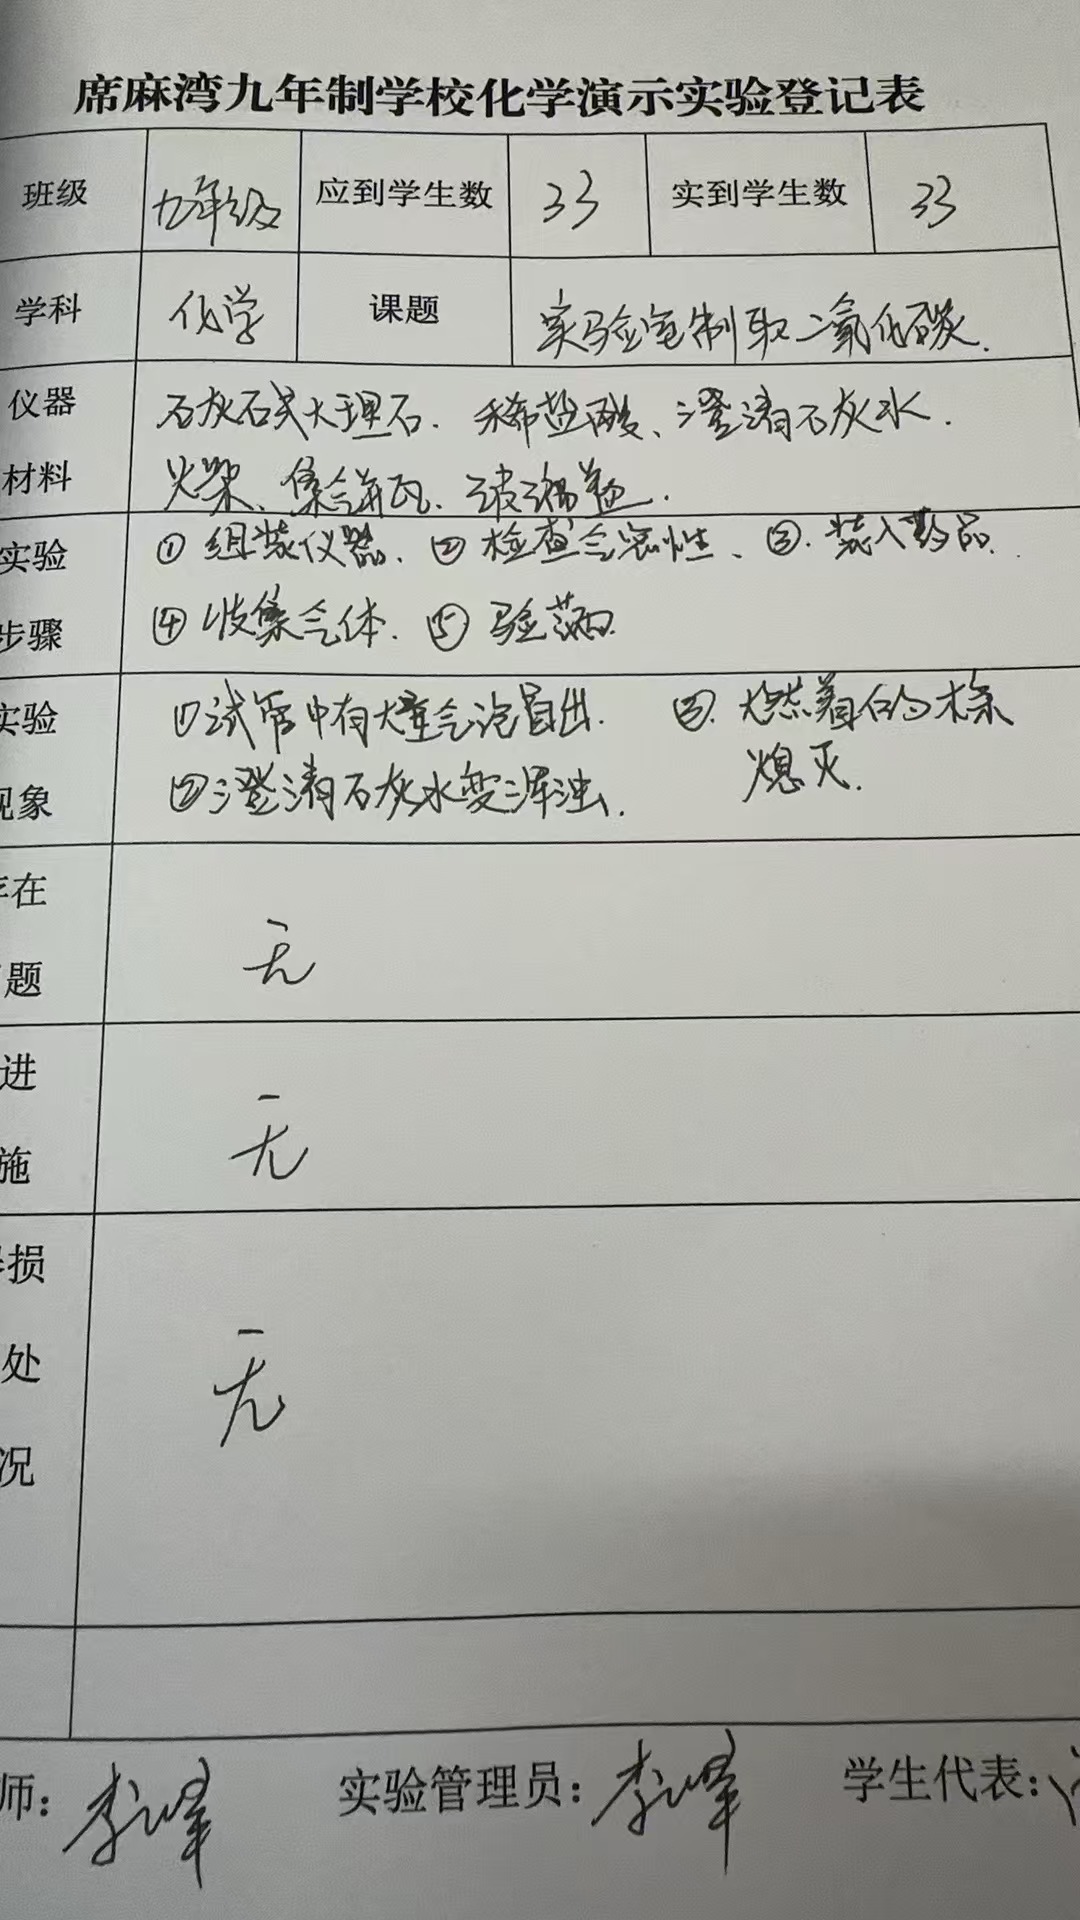 席麻湾九年制学校化学演示实验登记表
班级 九年级 应到学生数 33 实到学生数 33
学科 化学 课题 实验室制取二氧化碳.
仪器 石灰石或大理石. 稀盐酸、澄清石灰水.
材料 火柴、集气瓶、玻璃盖.
实验 ①组装仪器、②检查气密性、③.装入药品.
步骤 ④收集气体. ⑤验满
实验 ①试管中有大量气泡冒出. ③.燃着的木条
熄灭.
现象 ②澄清石灰水变浑浊.
存在
题 无
进
施 无
损
处 无
况
师: 李峰 实验管理员: 李峰 学生代表: